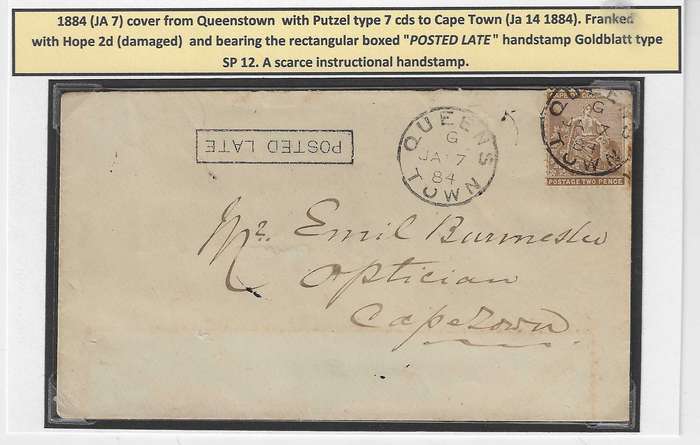 1884 (JA 7) cover from Queenstown with Putzel type 7 cds to Cape Town (Ja 14 1884). Franked
with Hope 2d (damaged) and bearing the rectangular boxed "POSTED LATE" handstamp Goldblatt type
SP 12. A scarce instructional handstamp.
POSTED LATE
QUEENS
G
JA 7
84
TOWN
QUEENS
G
JA
84
TOWN
POSTAGE TWO PENCE
Mr. Emil Burmester
Optician
Capetown